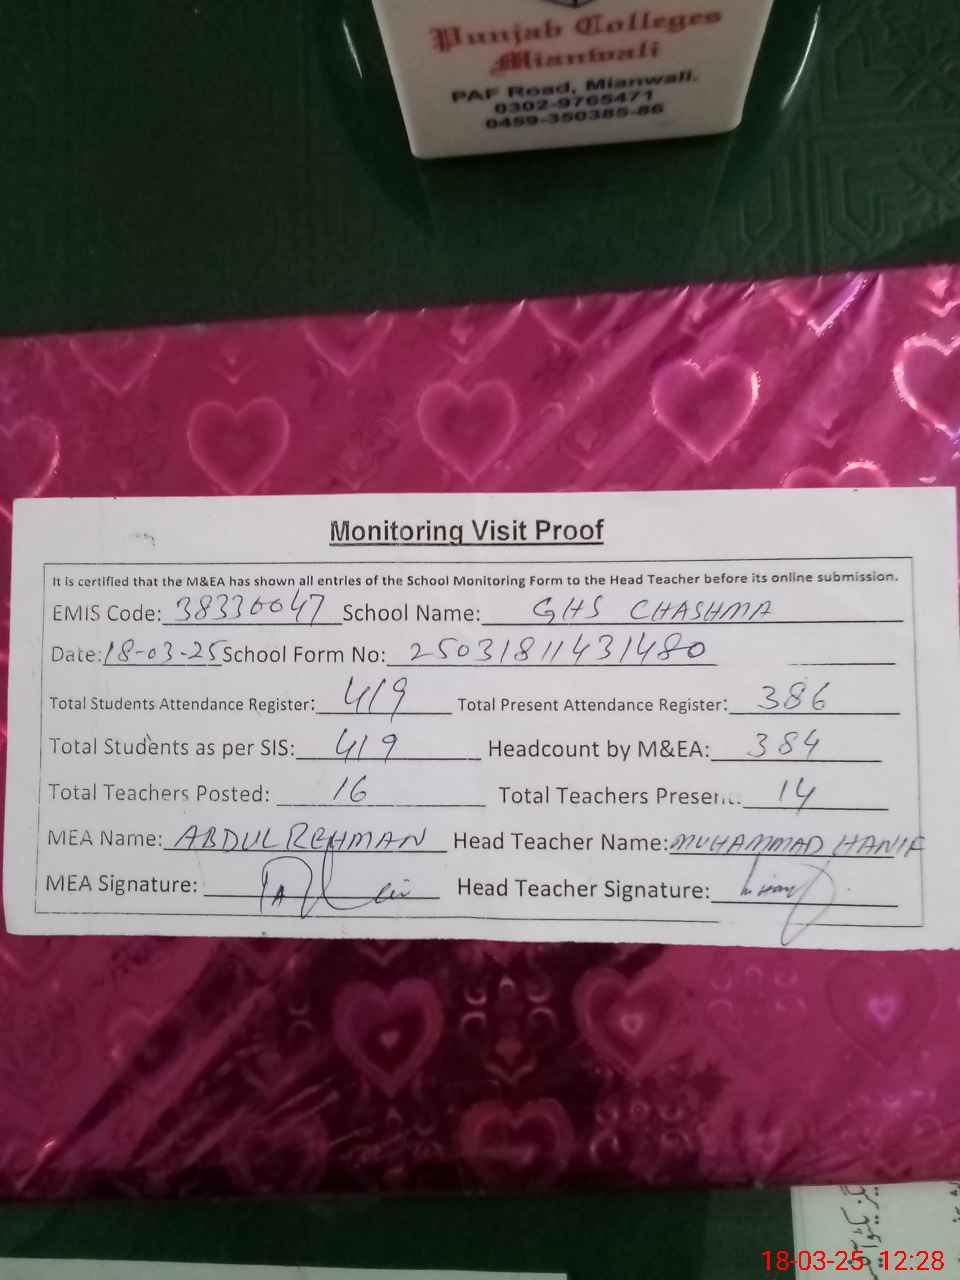 Punjab Colleges
Mianwali
PAF Road, Mianwali.
0302-9765471
0459-350385-86
Monitoring Visit Proof
It is certified that the M&EA has shown all entries of the School Monitoring Form to the Head Teacher before its online submission.
EMIS Code: 38330047 School Name: GHS CHASHMA
Date: 18-03-25 School Form No: 25031811431480
Total Students Attendance Register: 419 Total Present Attendance Register: 386
Total Students as per SIS: 419 Headcount by M&EA: 384
Total Teachers Posted: 16 Total Teachers Present: 14
MEA Name: ABDUL REHMAN Head Teacher Name: MUHAMMAD HANIF
MEA Signature: Head Teacher Signature:
18-03-25 12:28